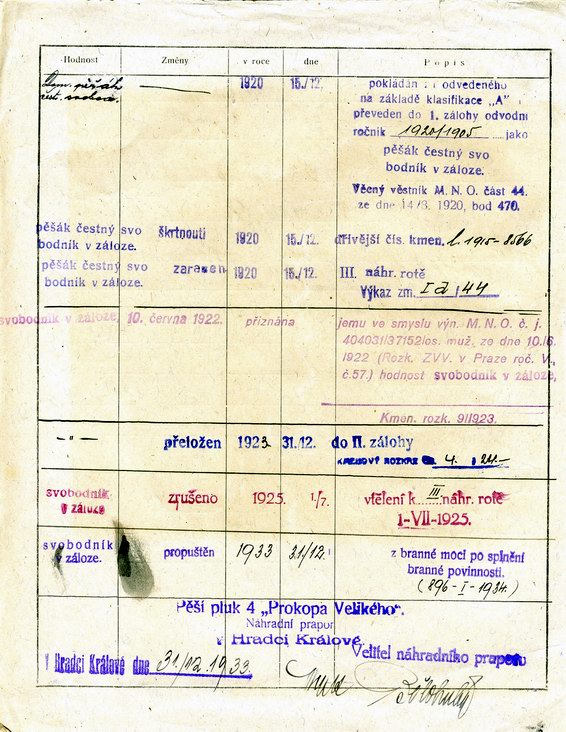 Hodnost Změny v roce dne Popis
pěšák
1920 15./12. pokládán za odvedeného
na základě klasifikace „A"
převeden do 1. zálohy odvodní
ročník 1920/1905 jako
pěšák čestný svo
bodník v záloze.
Věcný věstník M. N. O. část 44.
ze dne 14/8. 1920, bod 470.
pěšák čestný svo
bodník v záloze.
škrtnouti 1920 15./12. dřívější čís. kmen. l. 1915-8566
pěšák čestný svo
bodník v záloze.
zarazen 1920 15./12. III. náhr. rotě
Výkaz zm. I a / 44
svobodník v záloze, 10. června 1922. přiznána jemu ve smyslu výn. M. N. O. č. j.
404031/37152los. muž. ze dne 10./6.
1922 (Rozk. ZVV. v Praze roč. V.,
č.57.) hodnost svobodník v záloze,
Kmen. rozk. 9/1923.
—"— přeložen 1923 31./12. do II. zálohy
KMENOVÝ ROZKAZ 4. / 24.—
svobodník
v záloze
zrušeno 1925. 1/7. vtělení k III náhr. rotě
1-VII-1925.
svobodník
v záloze.
propuštěn 1933 31/12. z branné moci po splnění
branné povinnosti.
(896-I-1934.)
Pěší pluk 4 „Prokopa Velikého".
Náhradní prapor
v Hradci Králové.
V Hradci Králové dne 31./12. 1933.
Velitel náhradního praporu